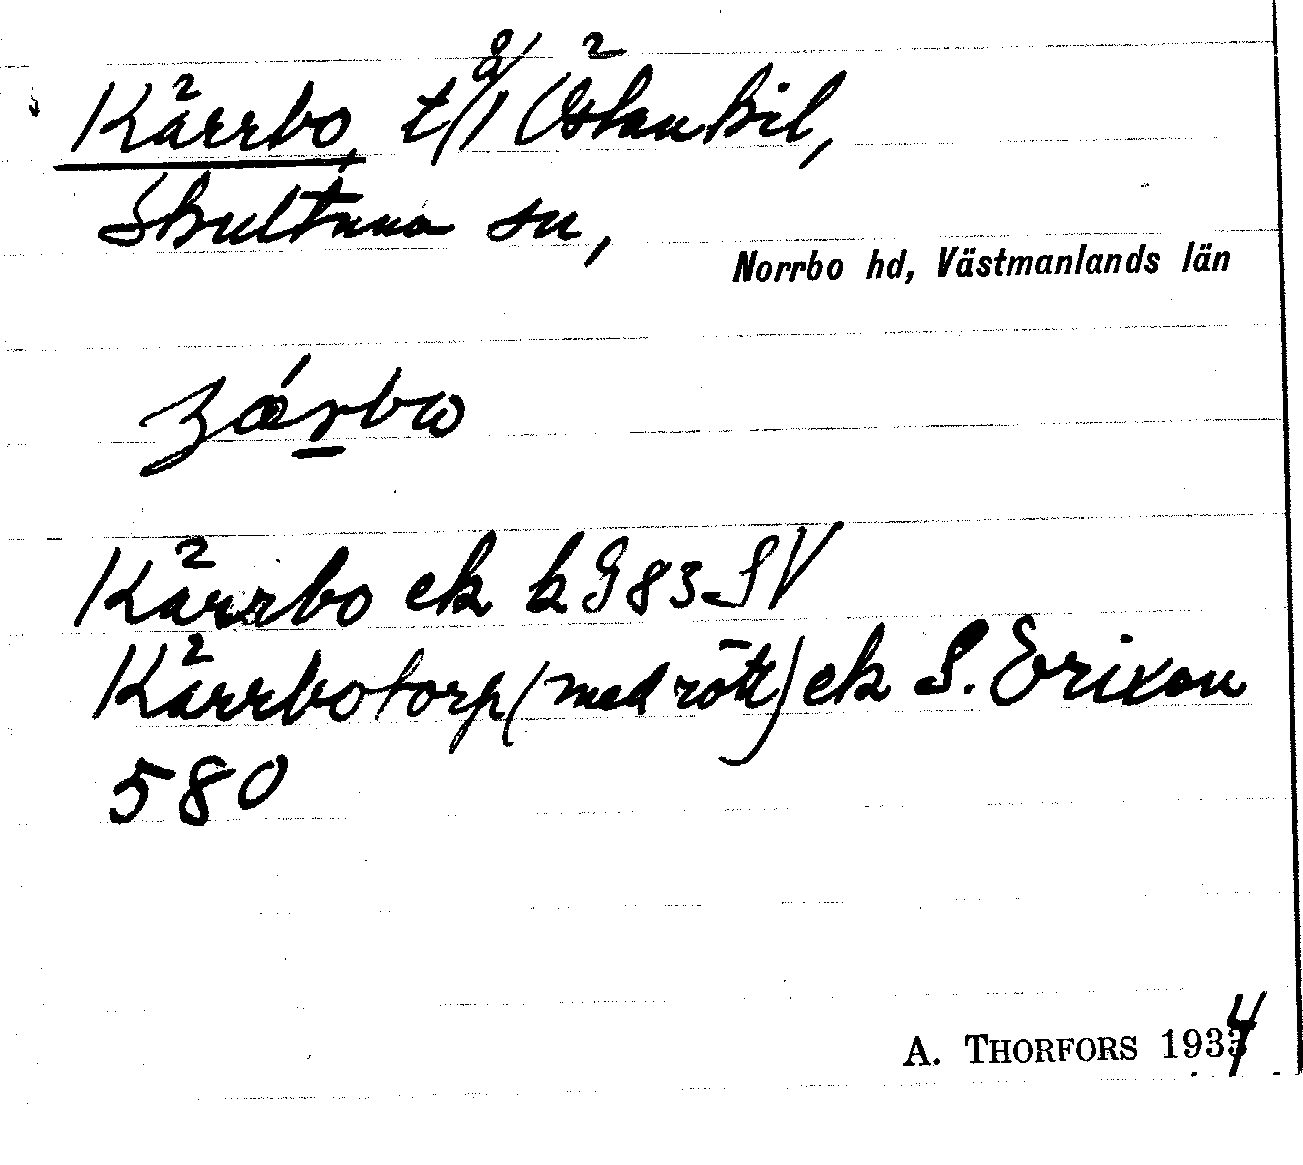 Kärrbo, t/ å/1 Östanbil,
Skultuna sn,
Norrbo hd, Västmanlands län
ʒǽrbω
Kärrbo ek k G 83 SV
Kärrbotorp (med rött) ek S. Erixon
580
A. THORFORS 1934